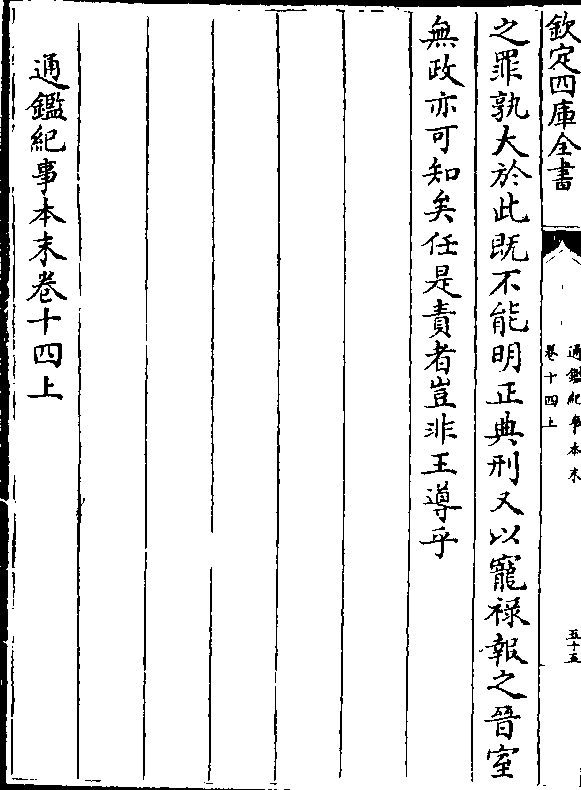 欽定四庫全書
通鑑紀事本末
卷十四上
五十五
之罪孰大於此既不能明正典刑又以寵祿報之晉室
無政亦可知矣任是責者豈非王導乎
通鑑紀事本末卷十四上